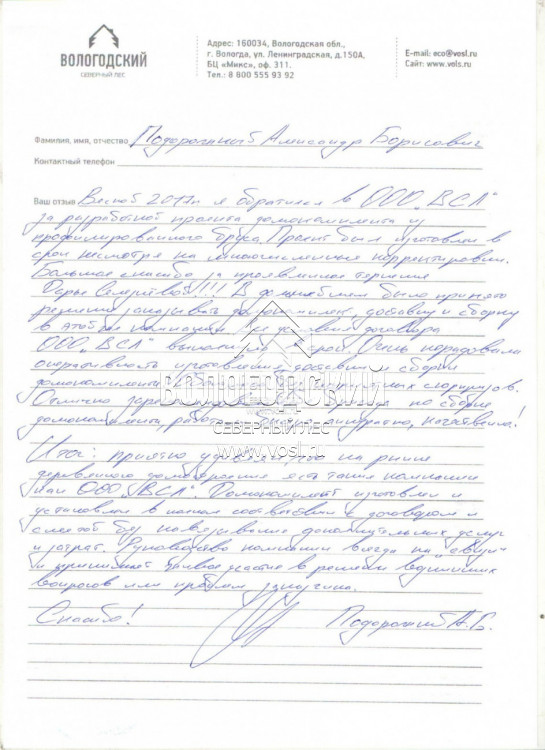 ВОЛОГОДСКИЙ
СЕВЕРНЫЙ ЛЕС
Адрес: 160034, Вологодская обл.,
г. Вологда, ул. Ленинградская, д.150А,
БЦ «Микс», оф. 311.
Тел.: 8 800 555 93 92
E-mail: eco@vosl.ru
Сайт: www.vols.ru
Фамилия, имя, отчество Подорожный Александр Борисович
Контактный телефон
Ваш отзыв Весной 2017г я обратился в ООО "ВСЛ"
за разработкой проекта домокомплекта из
профилированного бруса. Проект был изготовлен в
срок несмотря на многочисленные корректировки.
Большое спасибо за проявленное терпения
Дарье !!! В дальнейшем было принято
решение заказывать домокомплект, доставку и сборку
в этой же компании. договора
ООО "ВСЛ" выполнил Очень порадовала
оперативность изготовления доставки и сборки
домокомплекта
Отлично на сборке
домокомплекта аккуратно, качественно!
Итог: приятно что на рынке
деревянного домостроения есть такие компании
как ООО "ВСЛ". Домокомплект изготовлен и
установлен в полном соответствии с договором и
сметой без навязывания дополнительных услуг
и затрат. Руководство компании всегда на "связи"
и принимает участие в решении
вопросов или проблем заказчика.
Спасибо! Подорожный А.Б.
ВОЛОГОДСКИЙ
СЕВЕРНЫЙ ЛЕС
www.vosl.ru
ВОЛОГОДСКИЙ
СЕВЕРНЫЙ ЛЕС
www.vosl.ru